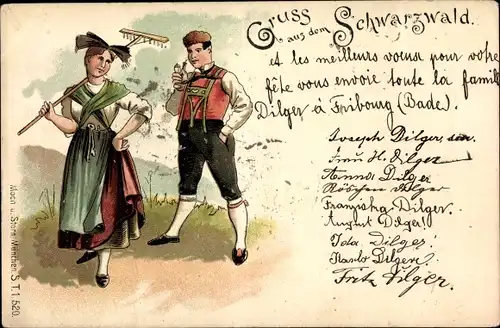 Gruss
aus dem
Schwarzwald.
et les meilleurs voeux pour votre
fête vous envoie toute la famil
Dilger à Fribourg (Bade).
Joseph Dilger, sen.
Frau H. Dilger
Anna Dilger
Röschen Dilger
Franziska Dilger.
August Dilger
Ida Dilger
Karlo Dilger
Fritz Dilger.
München S.T.1520.